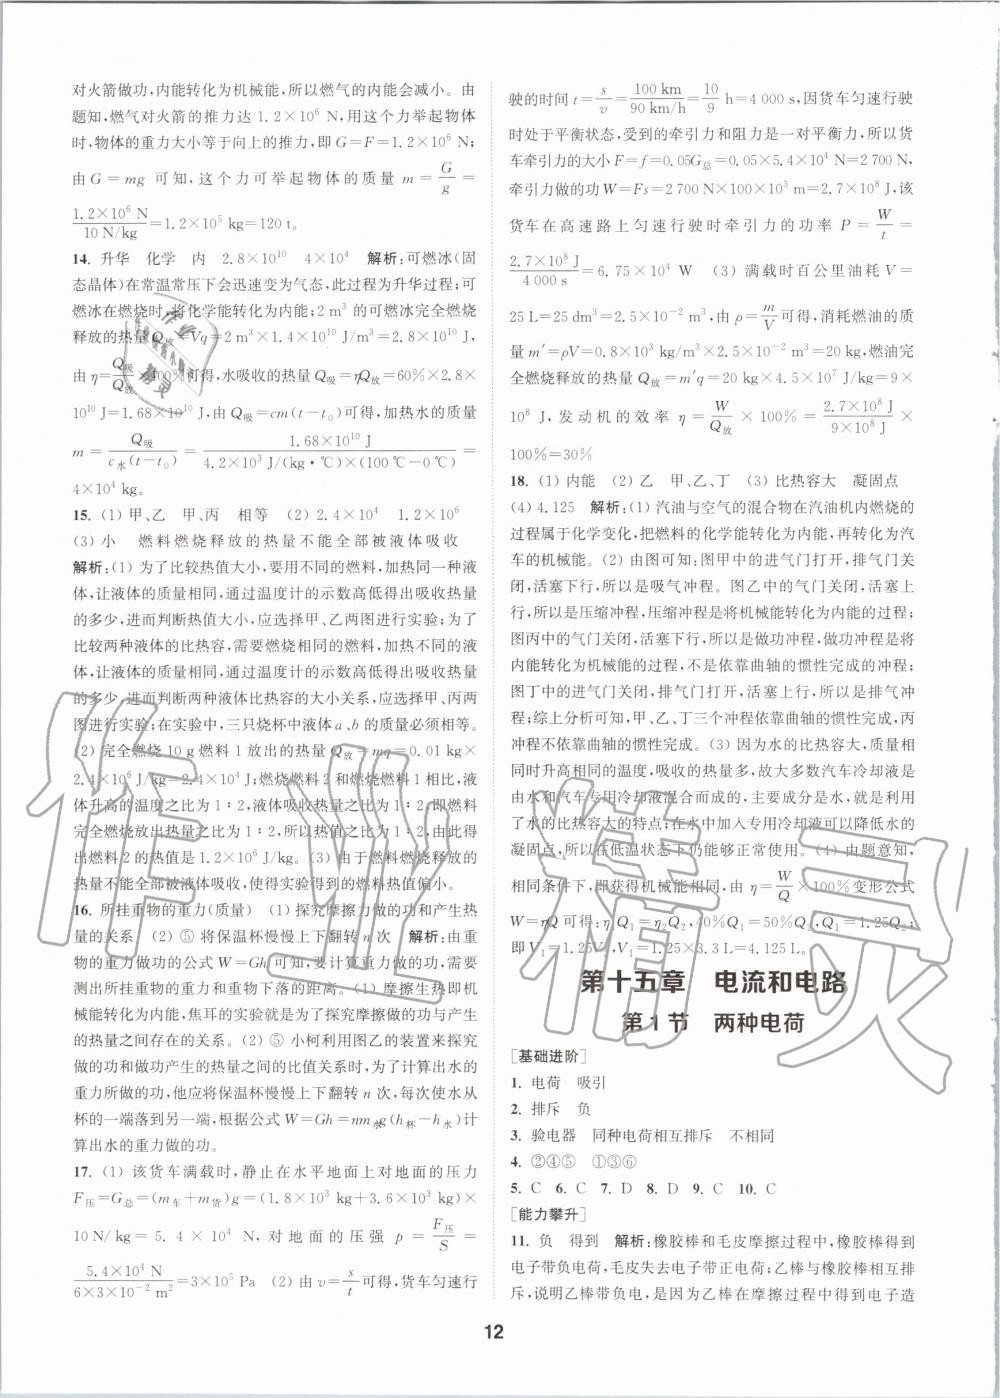 对火箭做功,内能转化为机械能,所以燃气的内能会减小。由
题知,燃气对火箭的推力达 1.2×10⁶ N,用这个力举起物体
时,物体的重力大小等于向上的推力,即 G=F=1.2×10⁶ N;
由 G = mg 可知,这个力可举起物体的质量 m = G/g =
1.2×10⁶ N/10 N/kg=1.2×10⁵ kg=120 t。
14. 升华 化学 内 2.8×10¹⁰ 4×10⁴ 解析:可燃冰(固
态晶体)在常温常压下会迅速变为气态,此过程为升华过程;可
燃冰在燃烧时,将化学能转化为内能;2 m³ 的可燃冰完全燃烧
释放的热量 Q放=Vq=2 m³×1.4×10¹⁰ J/m³=2.8×10¹⁰ J,
由 η=Q吸/Q放×100%可得,水吸收的热量 Q吸=ηQ放=60%×2.8×
10¹⁰ J=1.68×10¹⁰ J,由 Q吸=cm(t-t₀)可得,加热水的质量
m = Q吸/c水(t-t₀) = 1.68×10¹⁰ J/4.2×10³ J/(kg·℃)×(100 ℃-0 ℃) =
4×10⁴ kg。
15. (1) 甲、乙 甲、丙 相等 (2) 2.4×10⁴ 1.2×10⁶
(3) 小 燃料燃烧释放的热量不能全部被液体吸收
解析:(1) 为了比较热值大小,要用不同的燃料,加热同一种液
体,让液体的质量相同,通过温度计的示数高低得出吸收热量
的多少,进而判断热值大小,应选择甲、乙两图进行实验;为了
比较两种液体的比热容,需要燃烧相同的燃料,加热不同的液
体,让液体的质量相同,通过温度计的示数高低得出吸收热量
的多少,进而判断两种液体比热容的大小关系,应选择甲、丙两
图进行实验;在实验中,三只烧杯中液体 a、b 的质量必须相等。
(2) 完全燃烧 10 g燃料 1 放出的热量 Q放=mq=0.01 kg×
2.4×10⁶ J/kg=2.4×10⁴ J;燃烧燃料2 和燃烧燃料1 相比,
液体升高的温度之比为 1∶2,液体吸收热量之比为1∶2,即燃料
完全燃烧放出热量之比为 1∶2,所以热值之比为 1∶2,由此得
出燃料 2 的热值是 1.2×10⁶ J/kg。(3) 由于燃料燃烧释放的
热量不能全部被液体吸收,使得实验得到的热质值偏小。
16. 所挂重物的重力(质量) (1) 探究摩擦力做的功和产生热
量的关系 (2) ⑤ 将保温杯慢慢上下翻转 n 次 解析:由重
物的重力做功的公式 W=Gh可知,要计算重力做的功,需要
测出所挂重物的重力和重物下落的距离。(1) 摩擦生热即机
械能转化为内能,焦耳的实验就是为了探究摩擦力做的功与产生
的热量之间存在的关系。(2) ⑤ 小柯利用图乙的装置来探究
做的功和做功产生的热量之间的比值关系时,为了计算出水的
重力做的功,他应将保温杯慢慢上下翻转 n 次,每次使水从
杯的一端下落到另一端,根据公式 W=Gh=nm水g(h杯-h水)计
算出水的重力做的功。
17. (1) 该货车满载时,静止在水平地面上对地面的压力
F压=G总=(m车+m货)g=(1.8×10³ kg+3.6×10³ kg)×
10 N/kg=5.4×10⁴ N,对地面的压强 p = F压/S =
5.4×10⁴ N/6×3×10⁻² m²=3×10⁵ Pa (2) 由 v=s/t可得,货车匀速行
驶的时间 t=s/v=100 km/90 km/h=10/9 h=4 000 s,因货车匀速行驶
时处于平衡状态,受到的牵引力和阻力是一对平衡力,所以货
车牵引力的大小 F=f=0.05G总=0.05×5.4×10⁴ N=2 700 N,
牵引力做的功 W=Fs=2 700 N×100×10³ m=2.7×10⁸ J,该
货车在高速路上匀速行驶时牵引力的功率 P = W/t =
2.7×10⁸ J/4 000 s=6.75×10⁴ W (3) 满载时百公里油耗 V=
25 L=25 dm³=2.5×10⁻² m³,由 ρ=m/V可得,消耗燃油的质
量 m′=ρV=0.8×10³ kg/m³×2.5×10⁻² m³=20 kg,燃油完
全燃烧释放的热量 Q放=m′q=20 kg×4.5×10⁷ J/kg=9×
10⁸ J,发动机的效率 η = W/Q放 × 100% = 2.7×10⁸ J/9×10⁸ J ×
100%=30%
18. (1) 内能 (2) 乙 甲、乙、丁 (3) 比热容大 凝固点
(4) 4.125 解析:(1) 汽油与空气的混合物在汽油机内燃烧的
过程属于化学变化,把燃料的化学能转化为内能,再转化为汽
车的机械能。(2) 由图可知:图甲中的进气门打开,排气门关
闭,活塞下行,所以是吸气冲程。图乙中的气门关闭,活塞上
行,所以是压缩冲程,压缩冲程是将机械能转化为内能的过程;
图丙中的气门关闭,活塞下行,所以是做功冲程,做功冲程是将
内能转化为机械能的过程,不是依靠曲轴的惯性完成的冲程;
图丁中的进气门关闭,排气门打开,活塞上行,所以是排气冲
程;综上分析可知,甲、乙、丁三个冲程依靠曲轴的惯性完成,丙
冲程不依靠曲轴的惯性完成。(3) 因为水的比热容大,质量相
同时升高相同的温度,吸收的热量多,故大多数汽车冷却液是
由水和汽车专用冷却液混合而成的,主要成分是水,就是利用
了水的比热容大的特点;在水中加入专用冷却液可以降低水的
凝固点,所以在低温状态下仍能够正常使用。(4) 由题意知,
相同条件下,即获得机械能相同,由 η=W/Q×100%变形公式
W=ηQ 可得:η₁Q₁=η₂Q₂,40%Q₁=50%Q₂,Q₁=1.25Q₂;
即 V₁=1.25V₂,V₁=1.25×3.3 L=4.125 L。
第十五章 电流和电路
第 1 节 两种电荷
[基础进阶]
1. 电荷 吸引
2. 排斥 负
3. 验电器 同种电荷相互排斥 不相同
4. ②④⑤ ①③⑥
5. C 6. C 7. D 8. D 9. C 10. C
[能力攀升]
11. 负 得到 解析:橡胶棒和毛皮摩擦过程中,橡胶棒得到
电子带负电荷,毛皮失去电子带正电荷;乙棒与橡胶棒相互排
斥,说明乙棒带负电,是因为乙棒在摩擦过程中得到电子造
12
作业精灵
作业
精灵